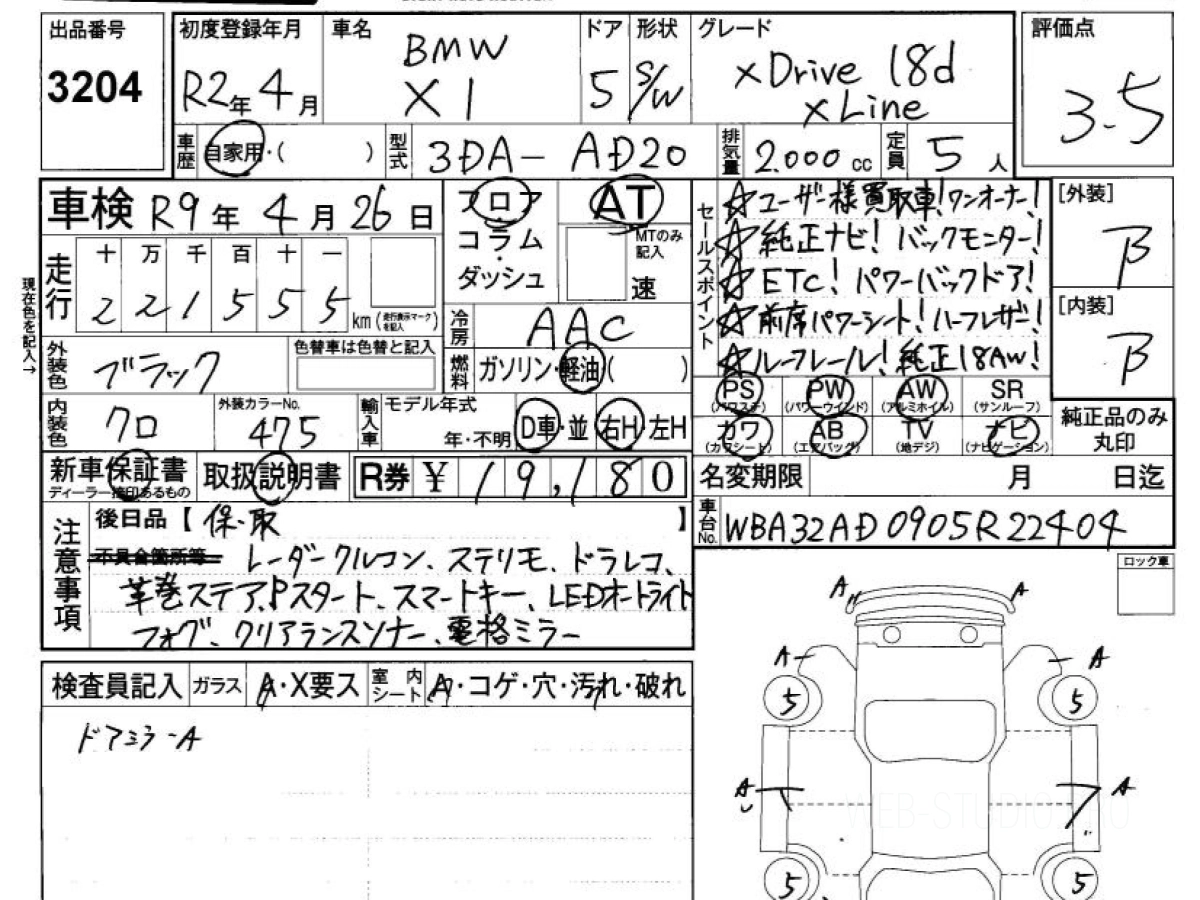 出品番号
3204
初度登録年月
R2年4月
車名
BMW
X1
ドア
5
形状
S/W
グレード
xDrive 18d
xLine
評価点
3-5
車歴
自家用・( )
型式
3DA- AD20
排気量
2.000 cc
定員
5人
車検 R9年4月26日
走行
十 万 千 百 十 一
2 2 1 5 5 5
km(走行表示マークを記入)
現在色を記入→
外装色
ブラック
色替車は色替と記入
内装色
クロ
外装カラーNo.
475
フロア
コラム
・
ダッシュ
AT
MTのみ記入
速
冷房
AAC
燃料
ガソリン・軽油( )
輸入車
モデル年式
年・不明
D車・並
右H・左H
セールスポイント
☆ユーザー様買取車!ワンオーナー!
☆純正ナビ!バックモニター!
☆ETC!パワーバックドア!
☆前席パワーシート!ハーフレザー!
☆ルーフレール!純正18AW!
[外装]
B
[内装]
B
PS PW AW SR
(パワステ) (パワーウインド) (アルミホイル) (サンルーフ)
カワ AB TV ナビ
(カワシート) (エアバッグ) (地デジ) (ナビゲーション)
純正品のみ
丸印
新車保証書
ディーラー捺印あるもの
取扱説明書
R券 ¥ 19,180
名変期限 月 日迄
車台No.
WBA32AD0905R22404
注意事項
後日品【保・取 】
不具合箇所等 レーダークルコン、ステリモ、ドラレコ、
革巻ステア、Pスタート、スマートキー、LEDオートライト
フォグ、クリアランスソナー、電格ミラー
ロック車
検査員記入
ガラス
A・X要ス
室内シート
A・コゲ・穴・汚れ・破れ
ドアミラーA
A A
A A
5 5
A A
WEB-STUDIO.PRO
5 5